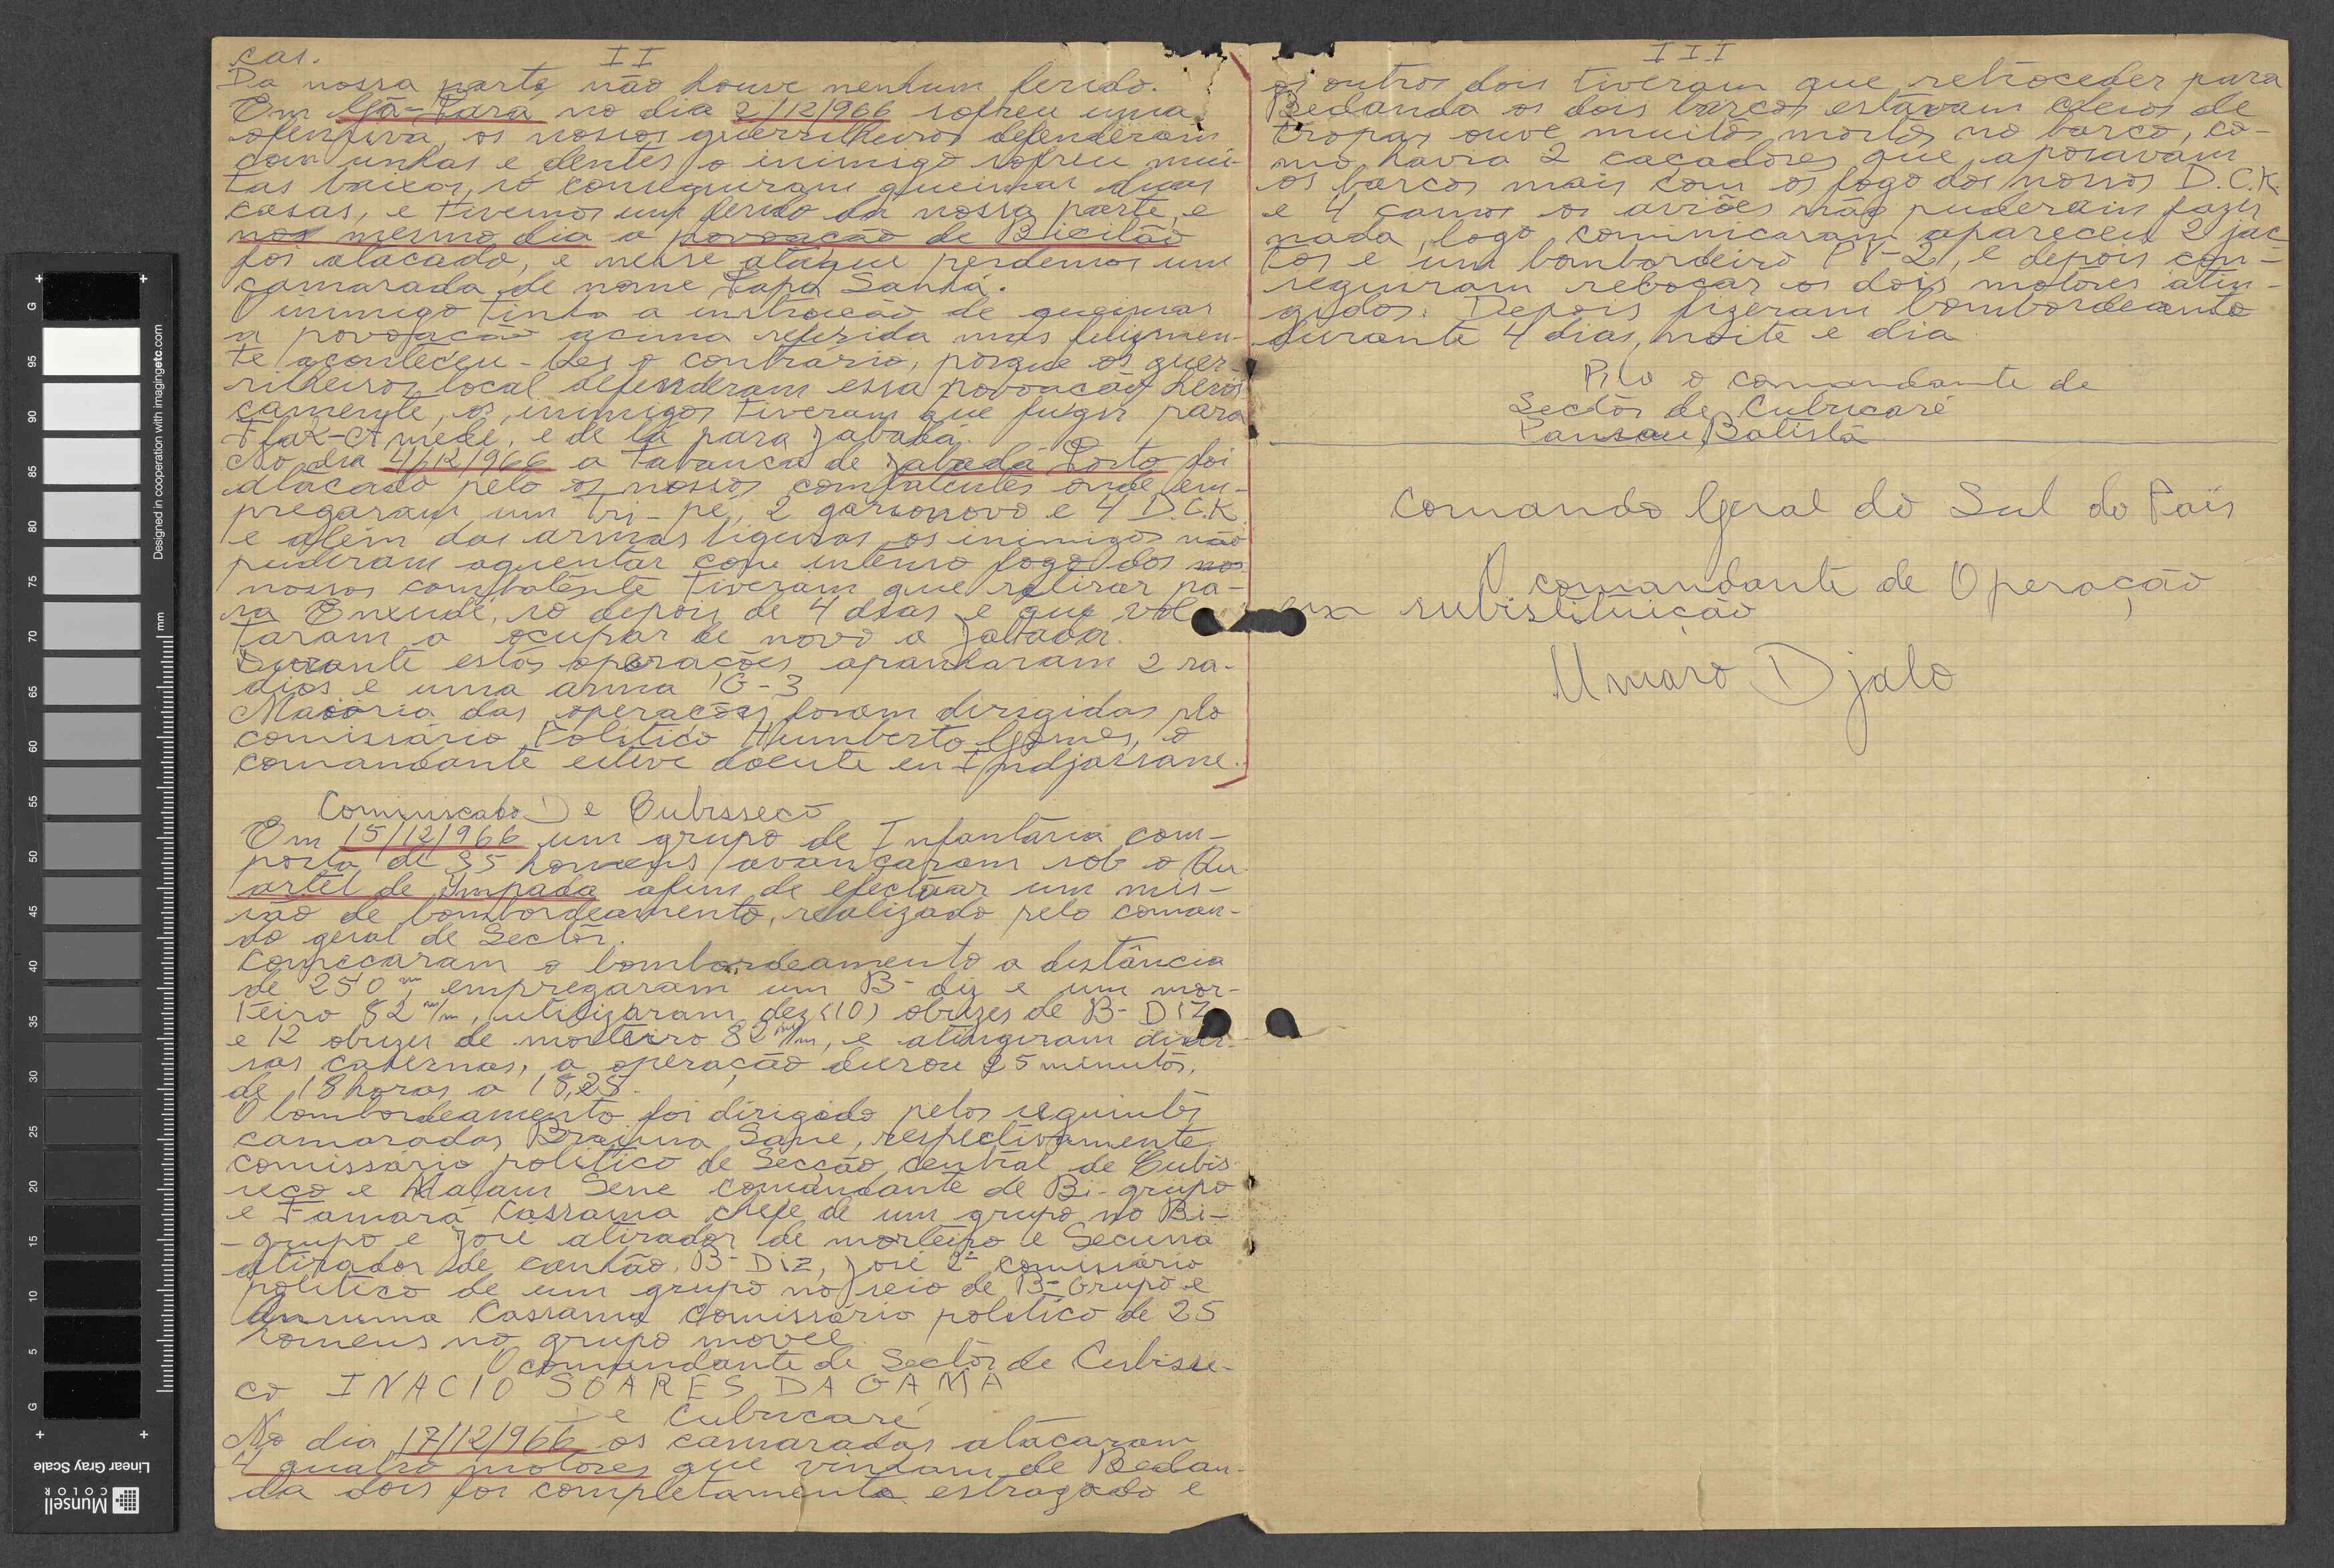 II
cas.
Da nossa parte não houve nenhum ferido.
Em Gã-Pará no dia 2/12/966 sofreu uma
ofensiva, os nossos guerrilheiros defenderam
com unhas e dentes o inimigo sofreu mui-
tas baixas, só conseguiram queimar duas
casas, e tivemos um ferido da nossa parte, e
nos mesmo dia a povoação de Bicilão
foi atacado, e nesse ataque perdemos um
camarada de nome Papa Sanhá.
O inimigo tinha a instrução de queimar
a povoação acima referida mas felizmen-
te aconteceu-les o contrario, porque os guer-
rilheiros local defenderam essa povoação heroi
camente, os inimigos tiveram que fugir para
e de lá para Jabadá.
No dia 4/12/966 a tabanca de Jabadá Porto foi
atacado pelo os nossos combatentes onde em-
pregaram um tri-pé, 2 garsonovo e 4 D.C.K.
e além das armas liguras, os inimigos não
puderam aguentar com intenso fogo dos nos
nossos combatente tiveram que retirar pa-
ra Enxudé, só depois de 4 dias e que vol
taram a ocupar de novo a Jabadá.
Durante estas operações apanharam 2 ra-
dios e uma arma G-3
Maioria das operações foram dirigidas plo
comissário Politico Humberto Gomes, o
comandante esteve doente en Indjassane.
Comuniscado De Cubisseco
Em 15/12/966 um grupo de Infantaria com-
posta de 35 homens avançaram sob o Qu
artel de Impada afim de efectuar um mis-
são de bombordeamento, realizado pelo coman-
do geral de Sectôr.
Começaram o bombordeamento a distância
de 250 m, empregaram um B-diz e um mor-
teiro 82 m/m, utilizaram dez (10) obuzes de B-DIZ
e 12 obuzes de morteiro 82 m/m, e atingiram diver-
sas casernas, a operação durou 25 minutos,
de 18 horas a 18,25.
O bombordeamento foi dirigido pelos seguintes
camaradas Braima Sane, respectivamente
comissário politico de Secção central de Cubis
seco e Malam Sene comandante de Bi-grupo
e Famará Cassama chefe de um grupo no Bi-
-grupo e José atirador de morteiro e Secuna
atirador de canhão B-Diz, José 2º comissário
politico de um grupo no seio de B-Grupo e
Cassama Comissário politico de 25
homens no grupo movel.
O comandante de Sectôr de Cubisse-
co INACIO SOARES DA GAMA
De Cubucaré
No dia 17/12/966 os camaradas atacaram
4 quatro motores que vinham de Bedan-
da dois foi completamente estragado e
III
os outros dois tiveram que retroceder para
Bedanda os dois barcos estavam cheios de
tropas ouve muitos mortos no barco, co-
mo havia 2 caçadores que apoiavam
os barcos mais com os fogo dos nossos D.C.K.
e 4 canos os aviões não puderam fazer
nada, logo cominicaram apareceu 2 jac
tos e um bombordeiro PV-2, e depois con-
seguiram rebocar os dois motores atin-
gidos. Depois fizeram bombordeanto
durante 4 dias, noite e dia
Pilo o comandante de
Sectôr de Cubucaré
Pansau Batista
Comando Geral do Sul do País
O comandante de Operação
em subistituição
Umaro Djalo
Designed in cooperation with imagingetc.com
mm
G
95
90
85
80
75
70
65
60
55
50
45
40
35
30
25
20
15
10
5
G
Munsell
COLOR
Linear Gray Scale